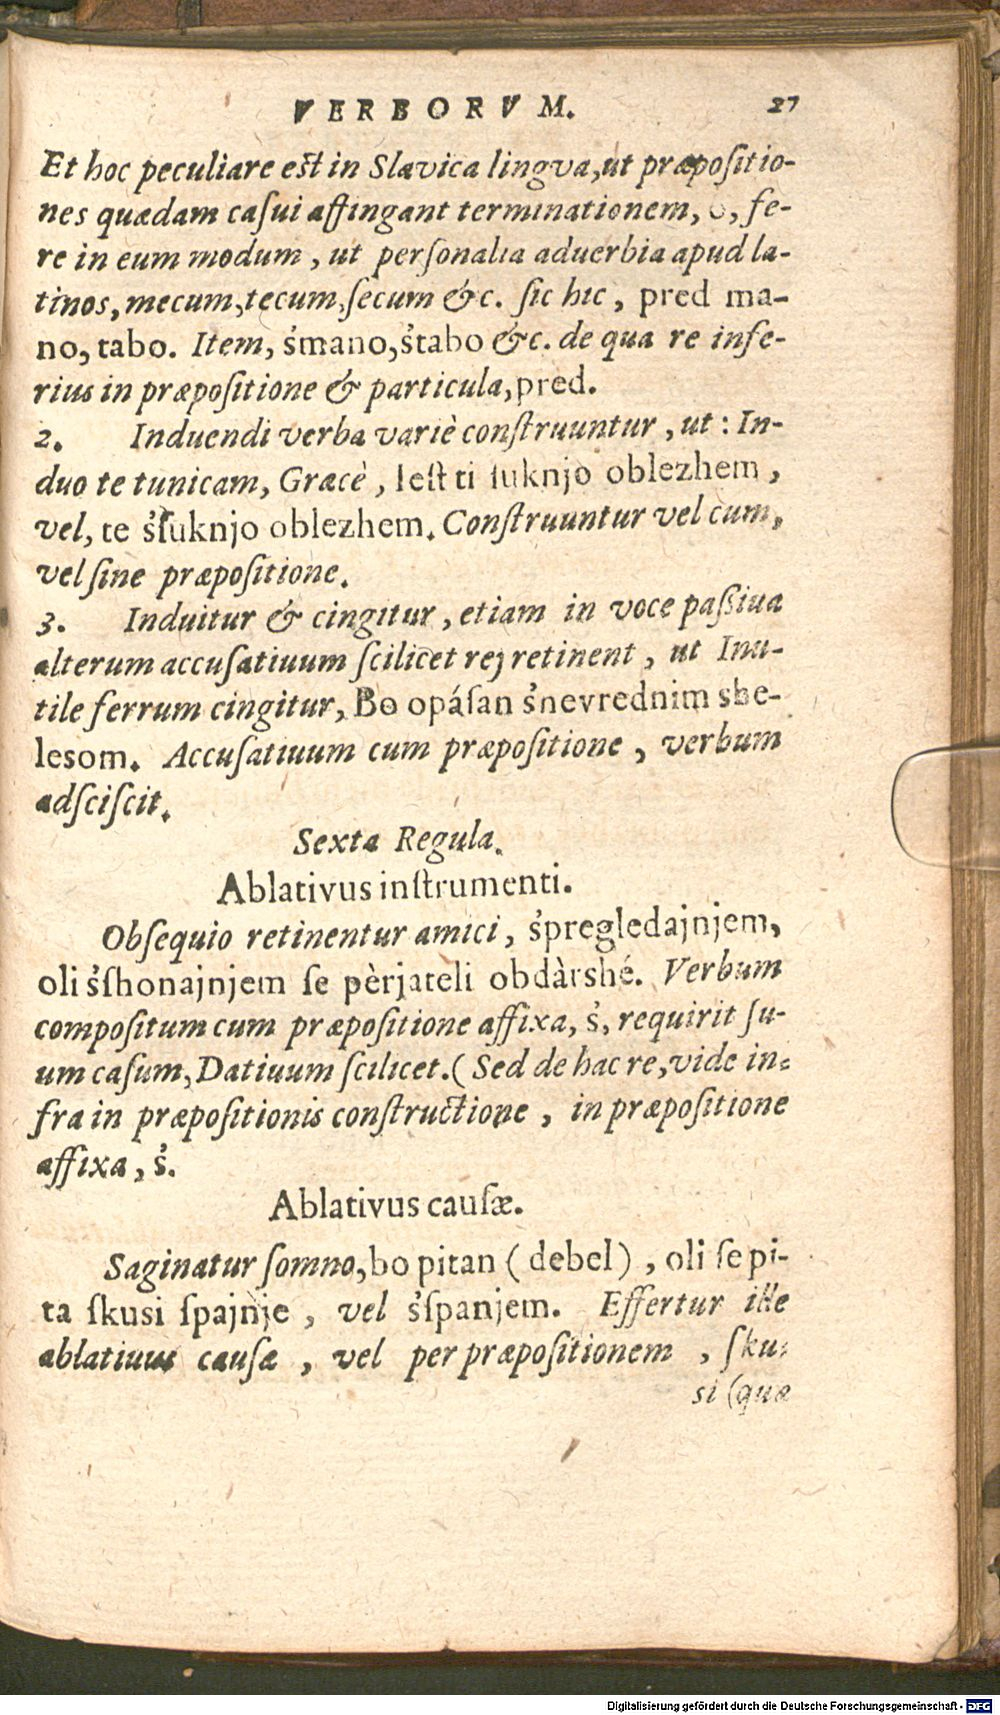 VERBORVM. 27
Et hoc peculiare est in Slavica lingva, ut præpositio-
nes quædam casui affingant terminationem, o, fe-
re in eum modum, ut personalia aduerbia apud la-
tinos, mecum, tecum, secum &c. sic hic, pred ma-
no, tabo. Item, s̓mano, s̓tabo &c. de qua re infe-
rius in præpositione & particula, pred.
2. Induendi verba variè construuntur, ut: In-
duo te tunicam, Græcè, Iest ti ſuknjo oblezhem,
vel, te s̓ſuknjo oblezhem. Construuntur vel cum,
vel ſine præpoſitione.
3. Induitur & cingitur, etiam in voce paſſiua
alterum accuſatiuum ſcilicet rej retinent, ut Inu-
tile ferrum cingitur, Bo opáſan s̓nevrednim she-
lesom. Accuſatiuum cum præpoſitione, verbum
adſciſcit.
Sexta Regula.
Ablativus inſtrumenti.
Obſequio retinentur amici, s̓pregledajnjem,
oli s̓ſhonajnjem ſe pèrjateli obdàrshé. Verbum
compoſitum cum præpoſitione affixa, s̓, requirit ſu-
um caſum, Datiuum ſcilicet. (Sed de hac re, vide in-
fra in præpoſitionis conſtructione, in præpoſitione
affixa, s̓.
Ablativus cauſæ.
Saginatur ſomno, bo pitan (debel), oli ſe pi-
ta ſkusi ſpajnje, vel s̓ſpanjem. Effertur ille
ablatiuus cauſæ, vel per præpoſitionem, ſku-
si (quæ
Digitalisierung gefördert durch die Deutsche Forschungsgemeinschaft - DFG